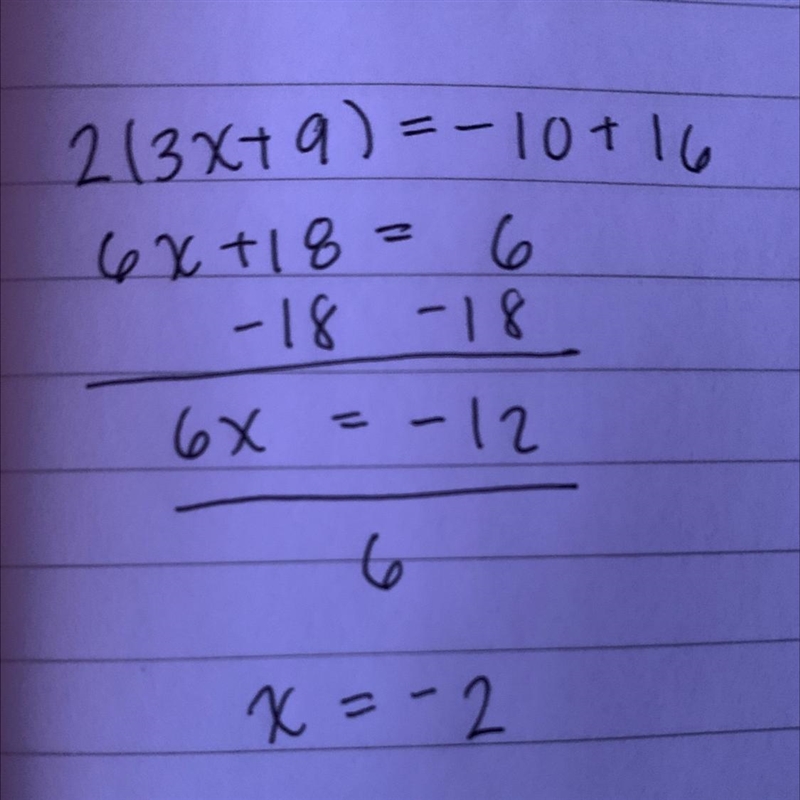 2(3x+9)=-10+16
6x+18= 6
-18 -18
6x = -12
6
x = -2